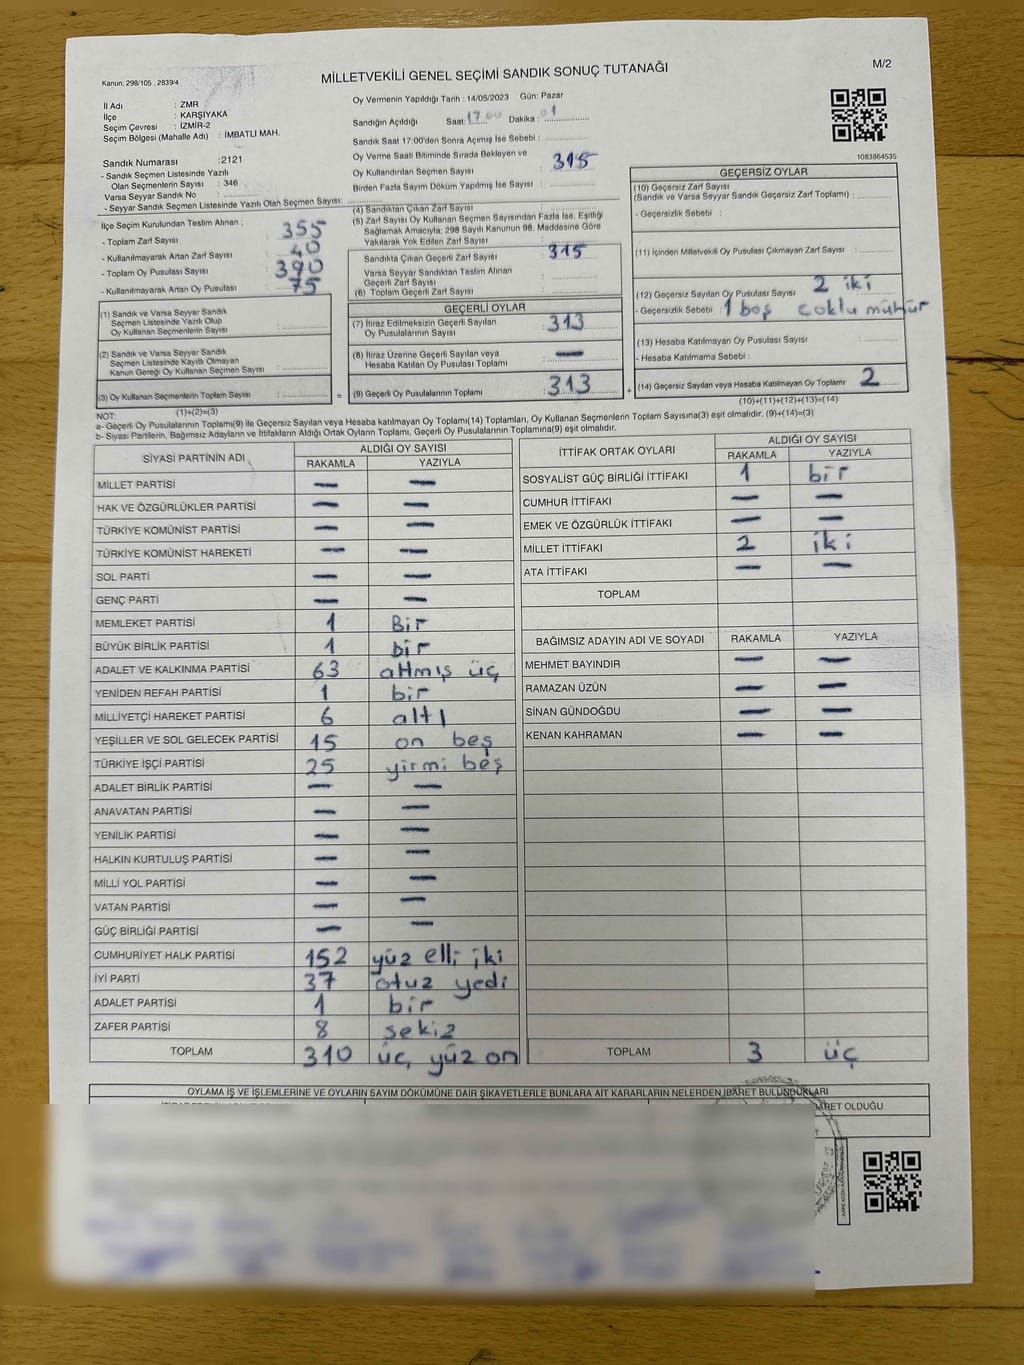 Kanun: 298/105 , 2839/4
MİLLETVEKİLİ GENEL SEÇİMİ SANDIK SONUÇ TUTANAĞI
M/2
İl Adı : ZMR
İlçe : KARŞIYAKA
Seçim Çevresi : İZMİR-2
Seçim Bölgesi (Mahalle Adı) : İMBATLI MAH.
Sandık Numarası :2121
- Sandık Seçmen Listesinde Yazılı
Olan Seçmenlerin Sayısı : 346
Varsa Seyyar Sandık No :
- Seyyar Sandık Seçmen Listesinde Yazılı Olan Seçmen Sayısı:
İlçe Seçim Kurulundan Teslim Alınan ;
- Toplam Zarf Sayısı : 355
- Kullanılmayarak Artan Zarf Sayısı : 40
- Toplam Oy Pusulası Sayısı : 390
- Kullanılmayarak Artan Oy Pusulası : 75
(1) Sandık ve Varsa Seyyar Sandık
Seçmen Listesinde Yazılı Olup
Oy Kullanan Seçmenlerin Sayısı :
(2) Sandık ve Varsa Seyyar Sandık
Seçmen Listesinde Kayıtlı Olmayan
Kanun Gereği Oy Kullanan Seçmen Sayısı :
(3) Oy Kullanan Seçmenlerin Toplam Sayısı :
(1)+(2)=(3)
Oy Vermenin Yapıldığı Tarih : 14/05/2023 Gün: Pazar
Sandığın Açıldığı Saat: 17.00 Dakika : 01
Sandık Saat 17:00'den Sonra Açmış İse Sebebi :
Oy Verme Saati Bitiminde Sırada Bekleyen ve
Oy Kullandırılan Seçmen Sayısı : 315
Birden Fazla Sayım Döküm Yapılmış İse Sayısı :
(4) Sandıktan Çıkan Zarf Sayısı :
(5) Zarf Sayısı Oy Kullanan Seçmen Sayısından Fazla İse, Eşitliği
Sağlamak Amacıyla; 298 Sayılı Kanunun 98. Maddesine Göre
Yakılarak Yok Edilen Zarf Sayısı :
Sandıkta Çıkan Geçerli Zarf Sayısı : 315
Varsa Seyyar Sandıktan Teslim Alınan
Geçerli Zarf Sayısı :
(6) Toplam Geçerli Zarf Sayısı :
GEÇERLİ OYLAR
(7) İtiraz Edilmeksizin Geçerli Sayılan
Oy Pusulalarının Sayısı : 313
(8) İtiraz Üzerine Geçerli Sayılan veya
Hesaba Katılan Oy Pusulası Toplamı : —
= (9) Geçerli Oy Pusulalarının Toplamı : 313 +
1083864535
GEÇERSİZ OYLAR
(10) Geçersiz Zarf Sayısı
(Sandık ve Varsa Seyyar Sandık Geçersiz Zarf Toplamı) :
- Geçersizlik Sebebi :
(11) İçinden Milletvekili Oy Pusulası Çıkmayan Zarf Sayısı :
(12) Geçersiz Sayılan Oy Pusulası Sayısı : 2 iki
- Geçersizlik Sebebi : 1 boş çoklu mühür
(13) Hesaba Katılmayan Oy Pusulası Sayısı :
- Hesaba Katılmama Sebebi :
(14) Geçersiz Sayılan veya Hesaba Katılmayan Oy Toplamı : 2
(10)+(11)+(12)+(13)=(14)
NOT:
a- Geçerli Oy Pusulalarının Toplamı(9) ile Geçersiz Sayılan veya Hesaba katılmayan Oy Toplamı(14) Toplamları, Oy Kullanan Seçmenlerin Toplam Sayısına(3) eşit olmalıdır. (9)+(14)=(3)
b- Siyasi Partilerin, Bağımsız Adayların ve İttifakların Aldığı Ortak Oyların Toplamı, Geçerli Oy Pusulalarının Toplamına(9) eşit olmalıdır.
SİYASİ PARTİNİN ADI ALDIĞI OY SAYISI
RAKAMLA YAZIYLA
MİLLET PARTİSİ — —
HAK VE ÖZGÜRLÜKLER PARTİSİ — —
TÜRKİYE KOMÜNİST PARTİSİ — —
TÜRKİYE KOMÜNİST HAREKETİ — —
SOL PARTİ — —
GENÇ PARTİ — —
MEMLEKET PARTİSİ 1 Bir
BÜYÜK BİRLİK PARTİSİ 1 bir
ADALET VE KALKINMA PARTİSİ 63 altmış üç
YENİDEN REFAH PARTİSİ 1 bir
MİLLİYETÇİ HAREKET PARTİSİ 6 altı
YEŞİLLER VE SOL GELECEK PARTİSİ 15 on beş
TÜRKİYE İŞÇİ PARTİSİ 25 yirmi beş
ADALET BİRLİK PARTİSİ — —
ANAVATAN PARTİSİ — —
YENİLİK PARTİSİ — —
HALKIN KURTULUŞ PARTİSİ — —
MİLLİ YOL PARTİSİ — —
VATAN PARTİSİ — —
GÜÇ BİRLİĞİ PARTİSİ — —
CUMHURİYET HALK PARTİSİ 152 yüz elli iki
İYİ PARTİ 37 otuz yedi
ADALET PARTİSİ 1 bir
ZAFER PARTİSİ 8 sekiz
TOPLAM 310 üç yüz on
İTTİFAK ORTAK OYLARI ALDIĞI OY SAYISI
RAKAMLA YAZIYLA
SOSYALİST GÜÇ BİRLİĞİ İTTİFAKI 1 bir
CUMHUR İTTİFAKI — —
EMEK VE ÖZGÜRLÜK İTTİFAKI — —
MİLLET İTTİFAKI 2 iki
ATA İTTİFAKI — —
TOPLAM
BAĞIMSIZ ADAYIN ADI VE SOYADI RAKAMLA YAZIYLA
MEHMET BAYINDIR — —
RAMAZAN ÜZÜN — —
SİNAN GÜNDOĞDU — —
KENAN KAHRAMAN — —
TOPLAM 3 üç
OYLAMA İŞ VE İŞLEMLERİNE VE OYLARIN SAYIM DÖKÜMÜNE DAİR ŞİKAYETLERLE BUNLARA AİT KARARLARIN NELERDEN İBARET BULUNDUKLARI
BARET OLDUĞU